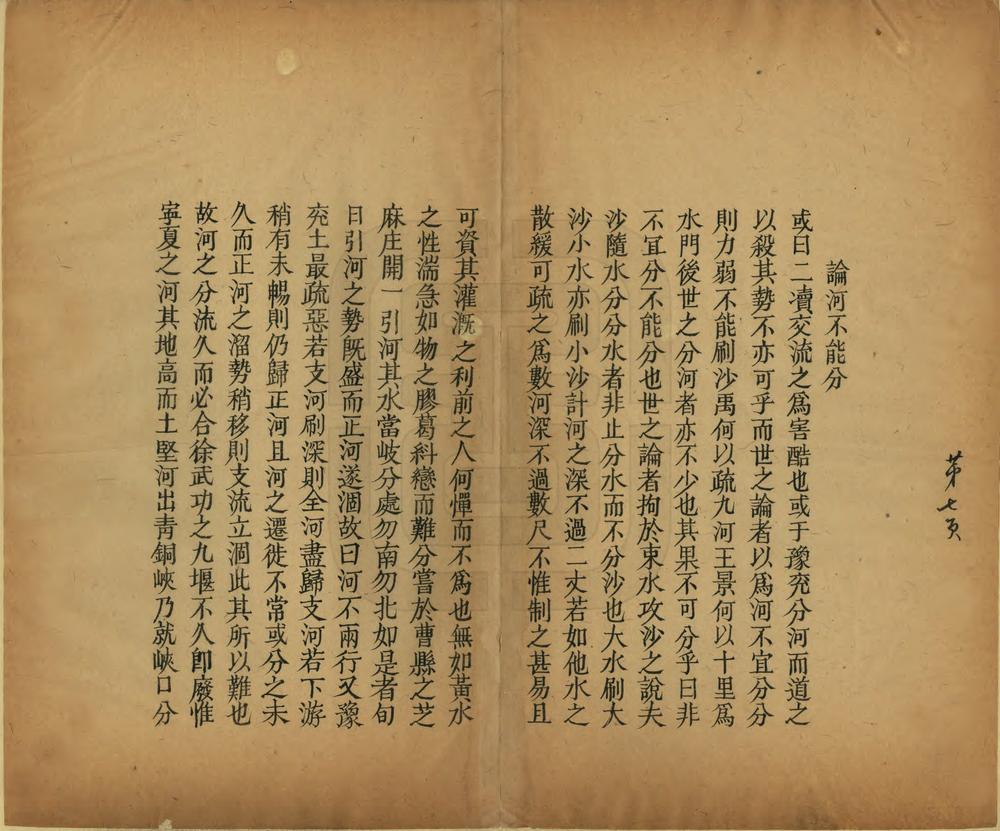 第七页
論河不能分
或曰二瀆交流之爲害酷也或于豫兖分河而道之
以殺其勢不亦可乎而世之論者以爲河不宜分分
則力弱不能刷沙禹何以疏九河王景何以十里爲
水門後世之分河者亦不少也其果不可分乎曰非
不宜分不能分也世之論者拘於束水攻沙之說夫
沙隨水分分水者非止分水而不分沙也大水刷大
沙小水亦刷小沙計河之深不過二丈若如他水之
散緩可疏之爲數河深不過數尺不惟制之甚易且
可資其灌漑之利前之人何憚而不爲也無如黃水
之性湍急如物之膠葛糾戀而難分嘗於曹縣之芝
麻庄開一引河其水當岐分處勿南勿北如是者旬
日引河之勢既盛而正河遂涸故曰河不兩行又豫
兖土最疏惡若支河刷深則全河盡歸支河若下游
稍有未暢則仍歸正河且河之遷徙不常或分之未
久而正河之溜勢稍移則支流立涸此其所以難也
故河之分流久而必合徐武功之九堰不久即廢惟
寧夏之河其地高而土堅河出青銅峽乃就峽口分